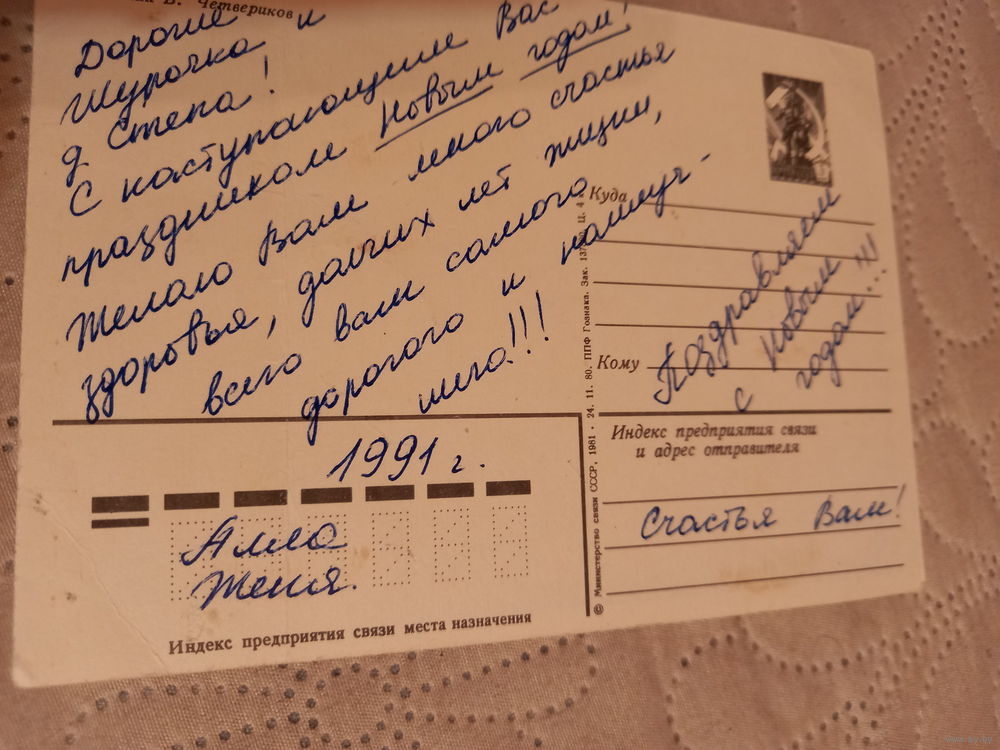 В. Четвериков
Дорогие
Шурочка и
д. Степа!
С наступающим Вас
праздником Новым годом!
Желаю Вам много счастья
здоровья, долгих лет жизни,
всего вам самого
дорогого и наилуч-
шего!!!
1991 г.
Алла
Женя.
Индекс предприятия связи места назначения
© Министерство связи СССР, 1981 . 24. 11. 80. ППФ Гознака. Зак. Ц. 4
Куда
Кому
Поздравляем
с Новым
годом!!!
Индекс предприятия связи
и адрес отправителя
Счастья Вам!